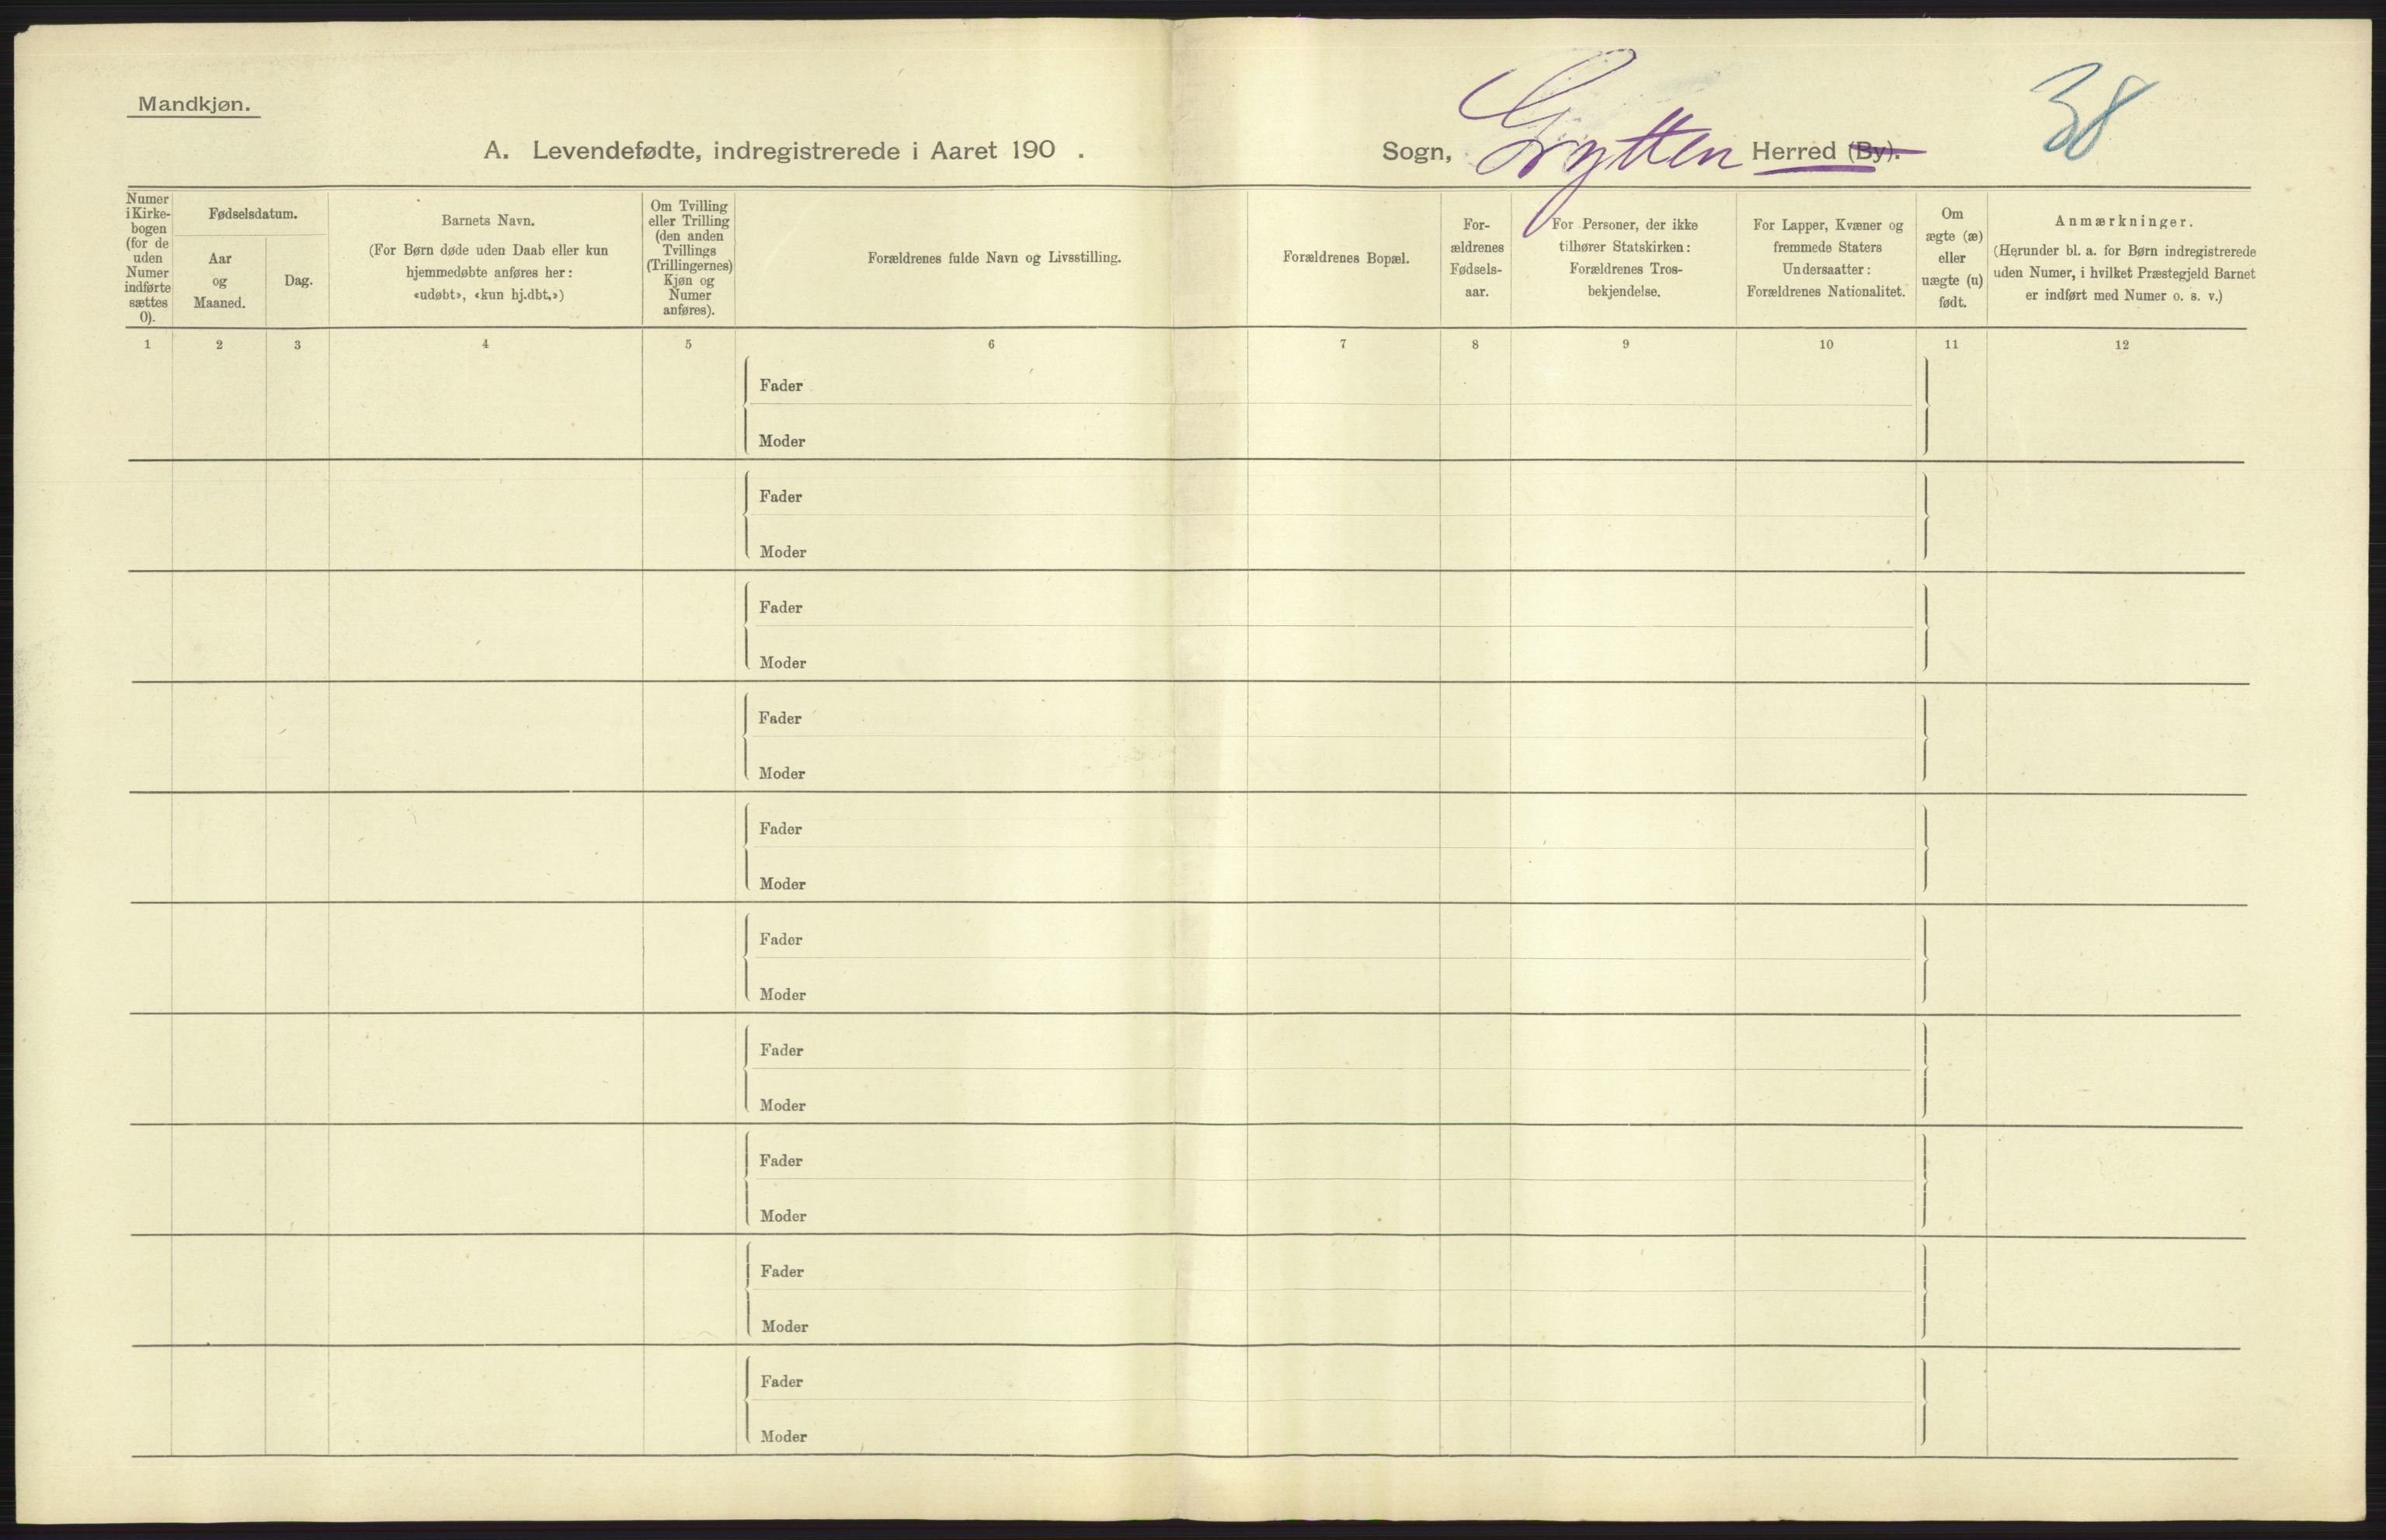 Mandkjøn.
A. Levendefødte, indregistrerede i Aaret 190 .
Sogn, Grytten Herred (By).
38
Numer
i Kirke-
bogen
(for de
uden
Numer
indførte
sættes
0).
Fødselsdatum.
Aar
og
Maaned.
Dag.
Barnets Navn.
(For Børn døde uden Daab eller kun
hjemmedøbte anføres her:
«udøbt», «kun hj.dbt.»)
Om Tvilling
eller Trilling
(den anden
Tvillings
(Trillingernes)
Kjøn og
Numer
anføres).
Forældrenes fulde Navn og Livsstilling.
Forældrenes Bopæl.
For-
ældrenes
Fødsels-
aar.
For Personer, der ikke
tilhører Statskirken:
Forældrenes Tros-
bekjendelse.
For Lapper, Kvæner og
fremmede Staters
Undersaatter:
Forældrenes Nationalitet.
Om
ægte (æ)
eller
uægte (u)
født.
Anmærkninger.
(Herunder bl. a. for Børn indregistrerede
uden Numer, i hvilket Præstegjeld Barnet
er indført med Numer o. s. v.)
1 2 3 4 5 6 7 8 9 10 11 12
Fader
Moder
Fader
Moder
Fader
Moder
Fader
Moder
Fader
Moder
Fader
Moder
Fader
Moder
Fader
Moder
Fader
Moder
Fader
Moder